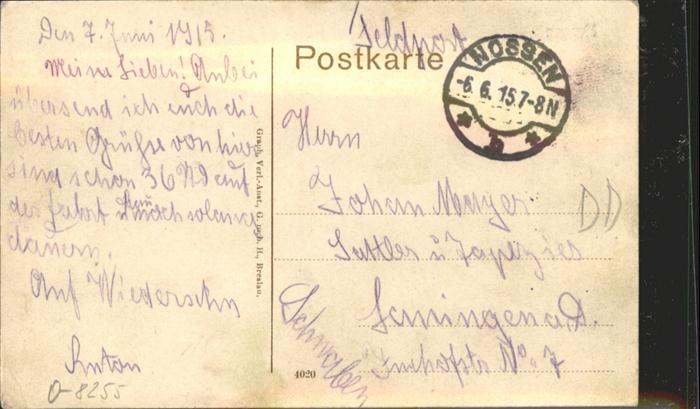 Den 7. Juni 1915.
Meine Lieben! Anbei
übersend ich euch die
besten Grüße von hier
sind schon 36 Std auf
der Fahrt kan noch solange
dauern.
Auf Wiedersehn
Anton
0-8255
Graph. Verl.-Anst., G. m. b. H., Breslau.
Feldpost
Postkarte
NOSSEN
-6. 6. 15.7-8N
* b *
Herrn
Johan Mayer
Sattler u Tapezier
Lauingen a. D.
No. 7
Schwaben
4020
DD